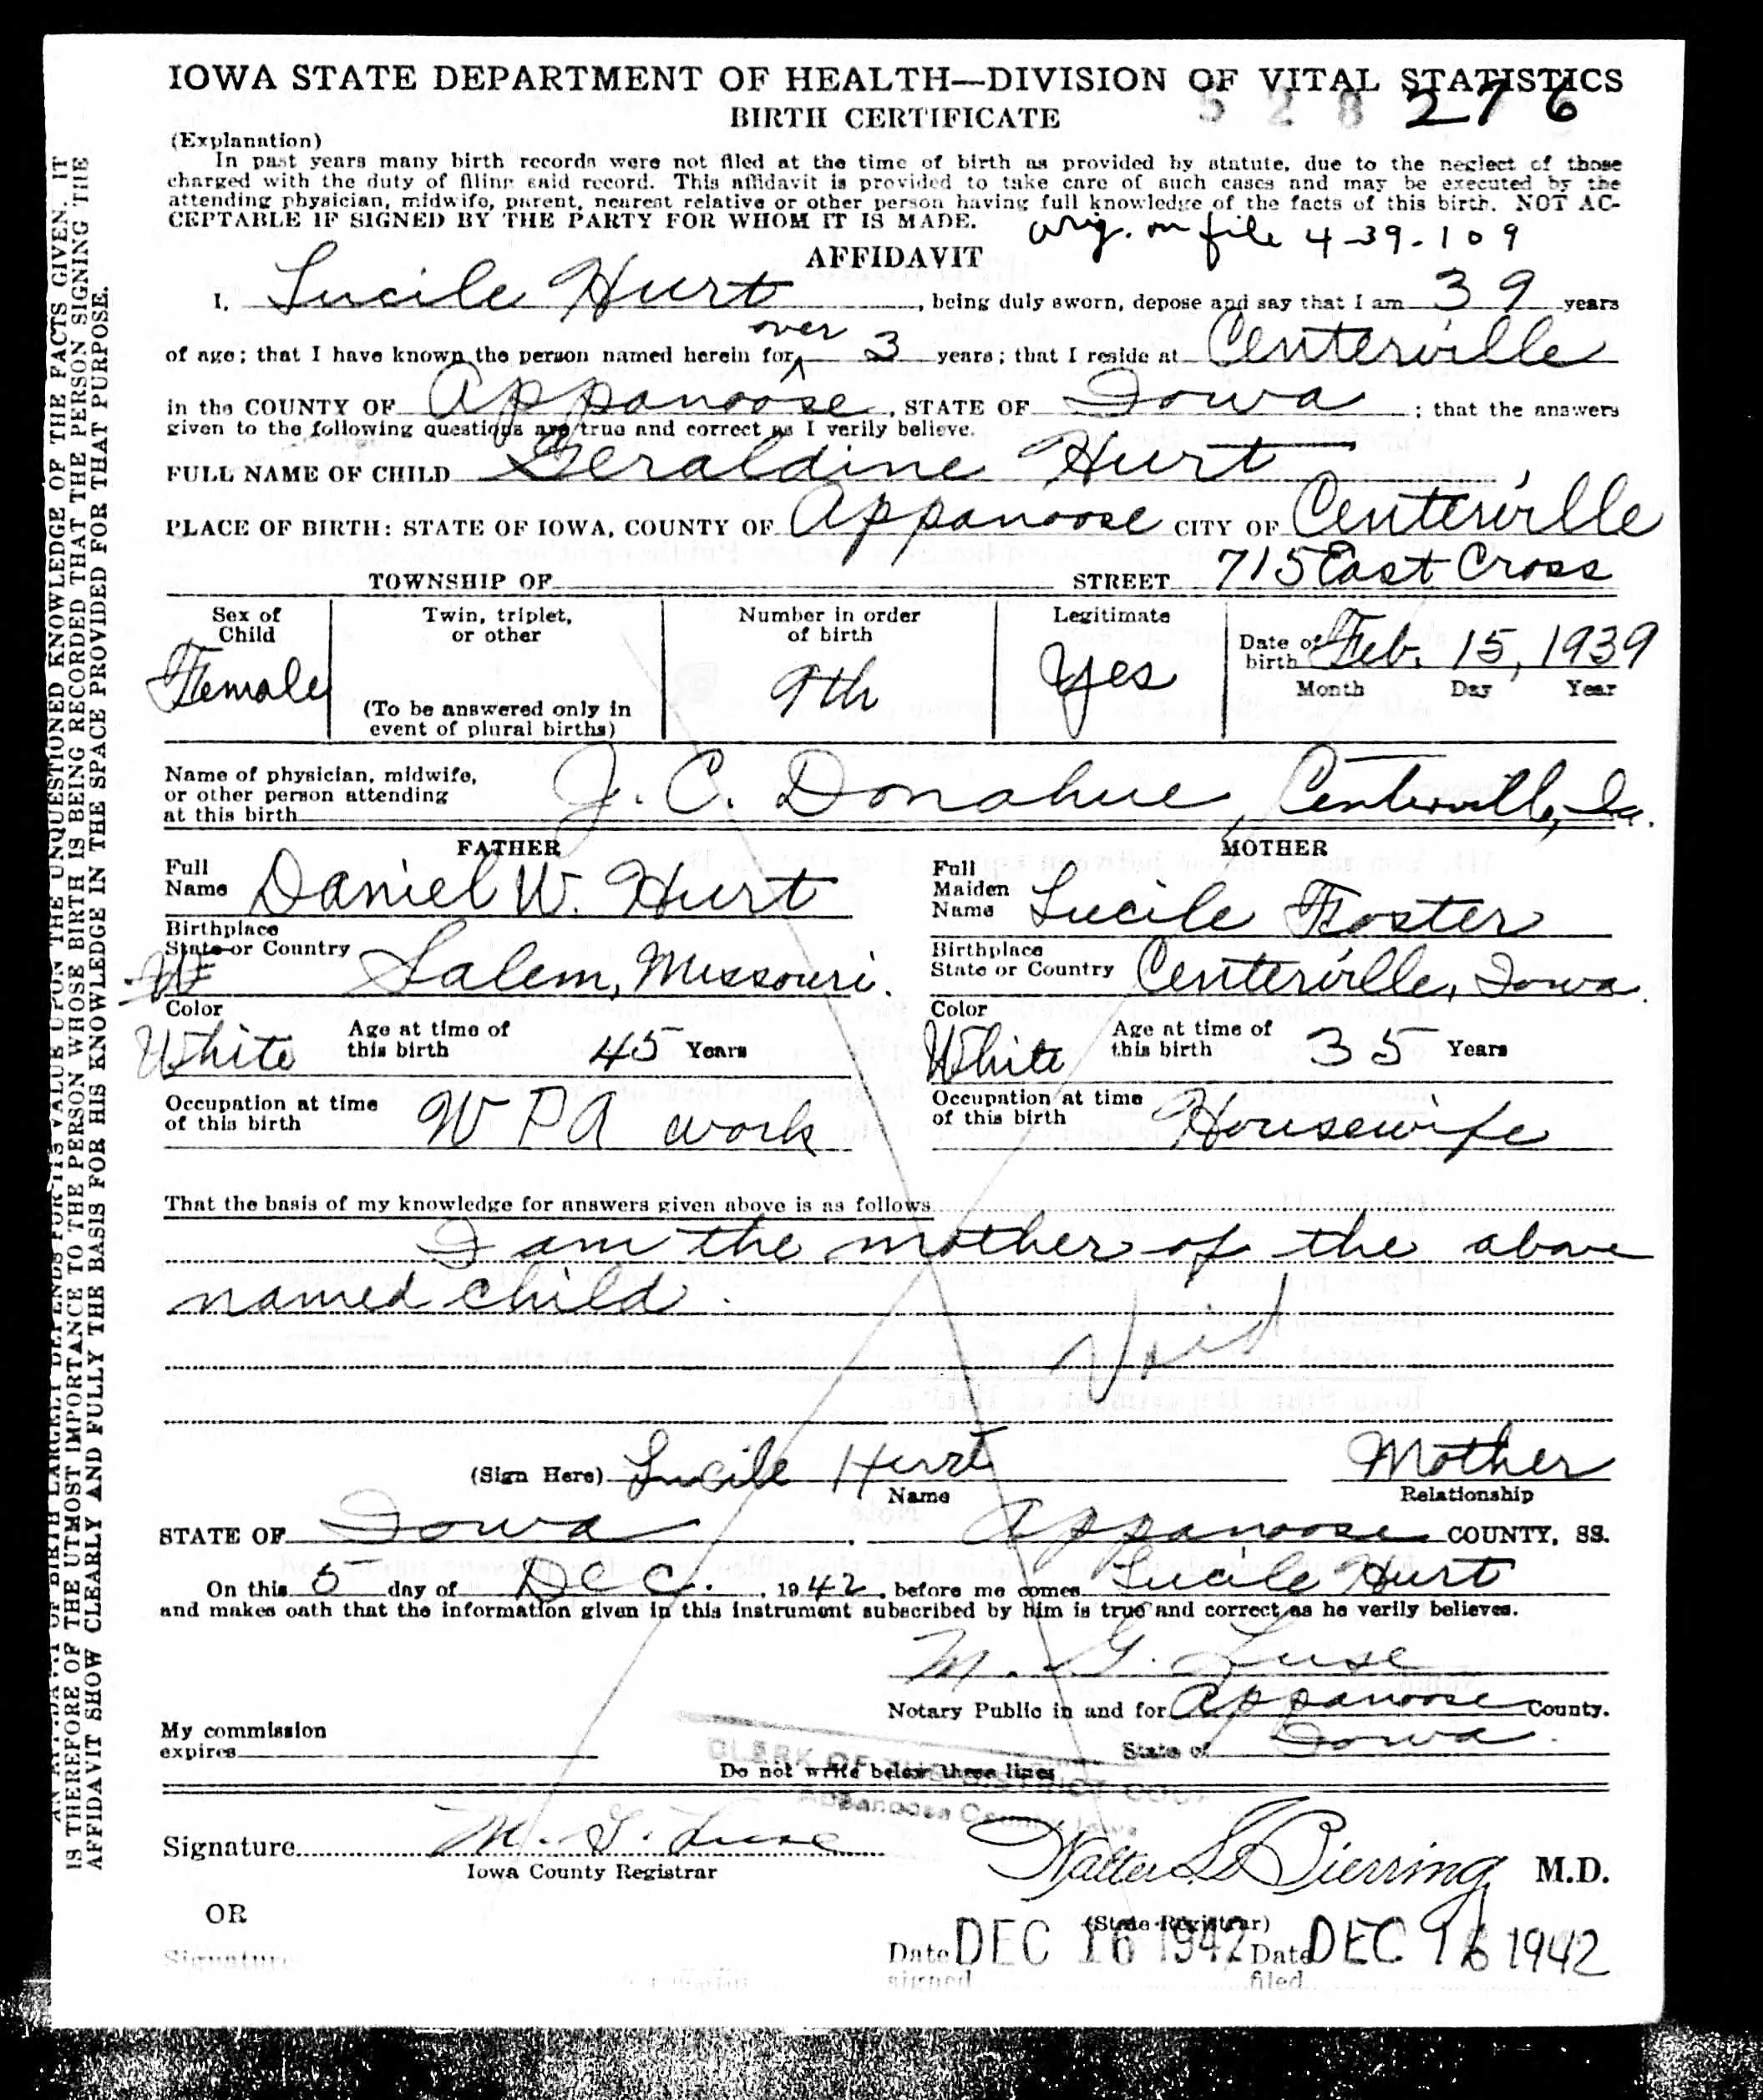 IOWA STATE DEPARTMENT OF HEALTH—DIVISION OF VITAL STATISTICS
BIRTH CERTIFICATE 528 276
(Explanation)
In past years many birth records were not filed at the time of birth as provided by statute, due to the neglect of those
charged with the duty of filing said record. This affidavit is provided to take care of such cases and may be executed by the
attending physician, midwife, parent, nearest relative or other person having full knowledge of the facts of this birth. NOT AC-
CEPTABLE IF SIGNED BY THE PARTY FOR WHOM IT IS MADE.
orig. on file 4-39-109
AFFIDAVIT
I, Lucile Hurt, being duly sworn, depose and say that I am 39 years
of age; that I have known the person named herein for over 3 years; that I reside at Centerville
in the COUNTY OF Appanoose, STATE OF Iowa; that the answers
given to the following questions are true and correct as I verily believe.
FULL NAME OF CHILD Geraldine Hurt
PLACE OF BIRTH: STATE OF IOWA, COUNTY OF Appanoose CITY OF Centerville
TOWNSHIP OF STREET 715 East Cross
Sex of Child Female
Twin, triplet, or other
(To be answered only in event of plural births)
Number in order of birth 9th
Legitimate Yes
Date of birth Feb. 15, 1939
Month Day Year
Name of physician, midwife,
or other person attending
at this birth J. C. Donahue, Centerville, Ia.
FATHER
Full Name Daniel W. Hurt
Birthplace
State or Country Salem, Missouri.
Color White Age at time of this birth 45 Years
Occupation at time of this birth WPA work
MOTHER
Full Maiden Name Lucile Foster
Birthplace
State or Country Centerville, Iowa.
Color White Age at time of this birth 35 Years
Occupation at time of this birth Housewife
That the basis of my knowledge for answers given above is as follows
I am the mother of the above
named child.
Void
(Sign Here) Lucile Hurt Mother
Name Relationship
STATE OF Iowa, Appanoose COUNTY, SS.
On this 5 day of Dec., 1942, before me comes Lucile Hurt
and makes oath that the information given in this instrument subscribed by him is true and correct as he verily believes.
M. G. Luse
Notary Public in and for Appanoose County.
My commission
expires State of Iowa.
CLERK OF THE DISTRICT COURT
Appanoose County Iowa
Do not write below these lines
Signature M. G. Luse
Iowa County Registrar
Walter L. Bierring M.D.
(State Registrar)
OR
Signature
Date signed DEC 16 1942 Date filed DEC 16 1942
AN AFFIDAVIT OF BIRTH LARGELY DEPENDS FOR ITS VALUE UPON THE UNQUESTIONED KNOWLEDGE OF THE FACTS GIVEN. IT
IS THEREFORE OF THE UTMOST IMPORTANCE TO THE PERSON WHOSE BIRTH IS BEING RECORDED THAT THE PERSON SIGNING THE
AFFIDAVIT SHOW CLEARLY AND FULLY THE BASIS FOR HIS KNOWLEDGE IN THE SPACE PROVIDED FOR THAT PURPOSE.